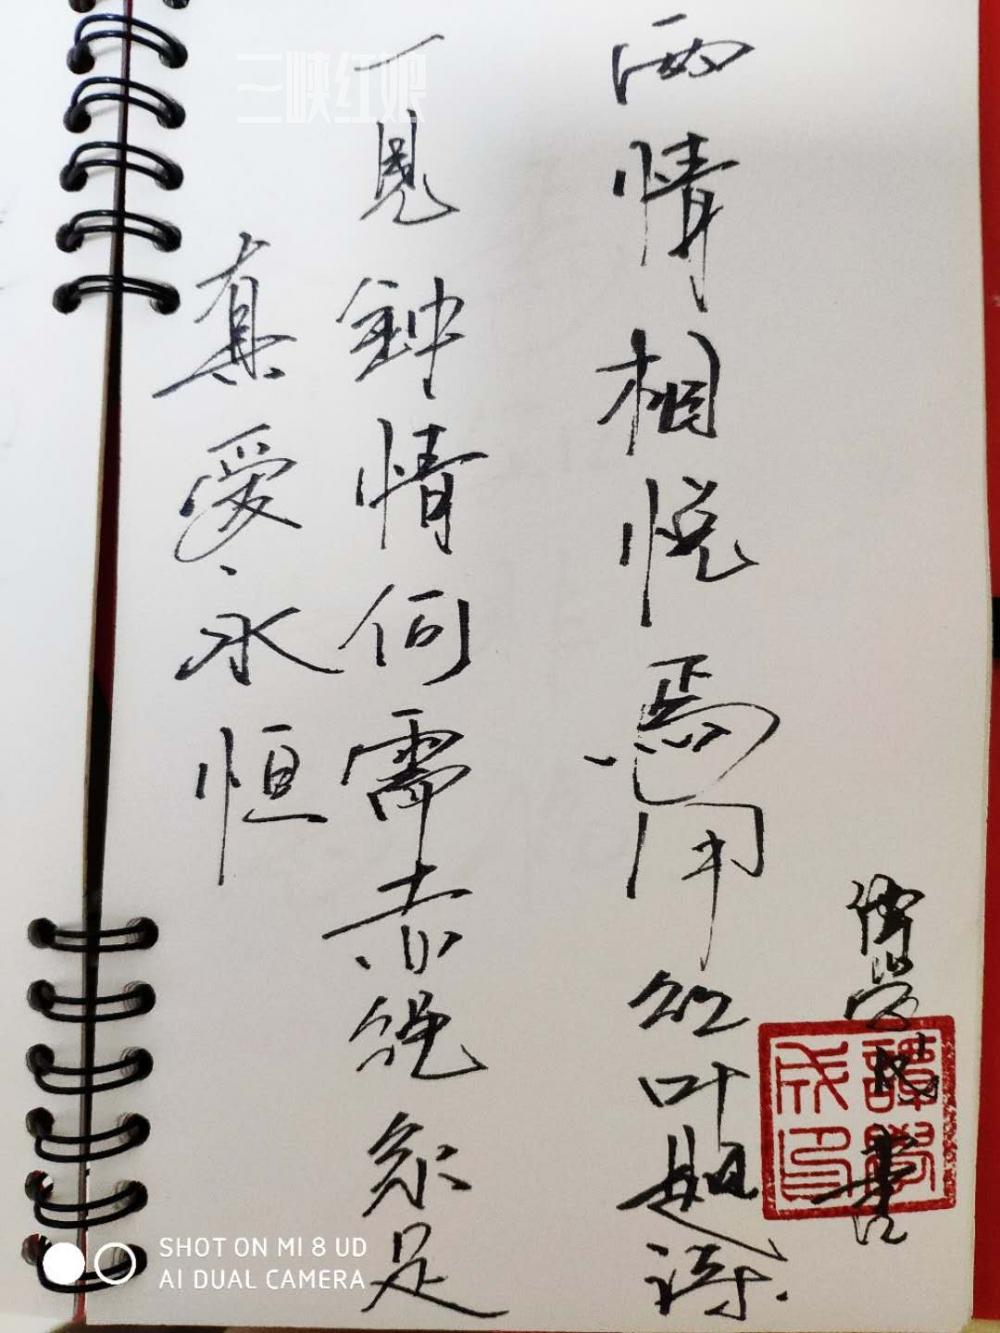 三峡红娘
两情相悦焉用红叶题诗
一見钟情何需赤绳系足
真爱永恒
譚學成印
SHOT ON MI 8 UD
AI DUAL CAMERA